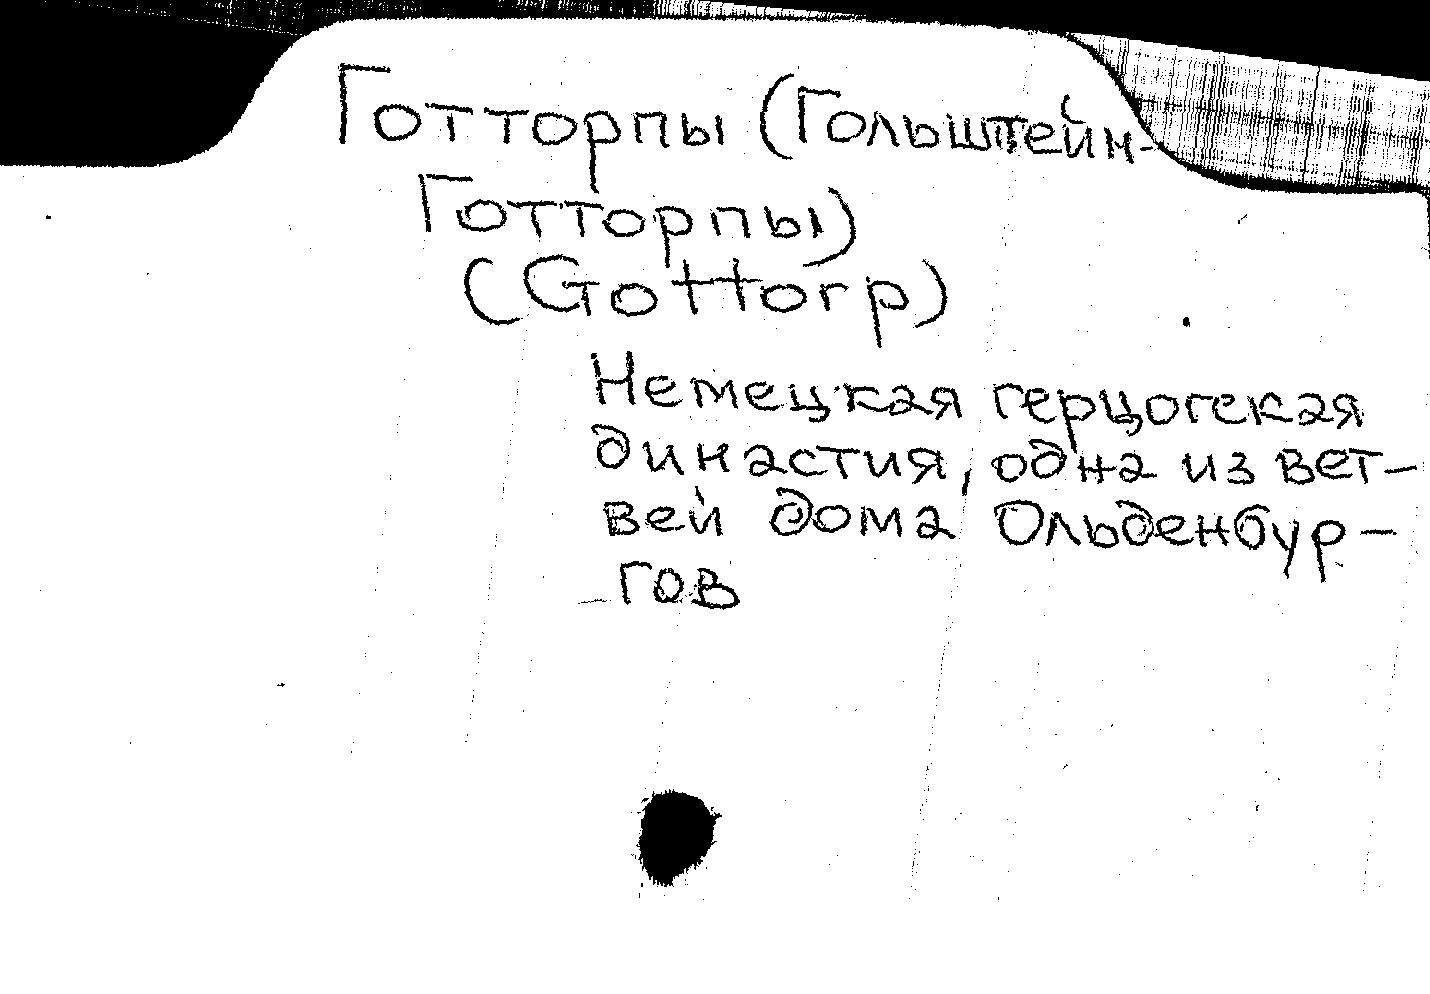 Готторпы (Гольштейн-
Готторпы)
(Gottorp)
Немецкая герцогская
династия, одна из вет-
вей дома Ольденбур-
гов